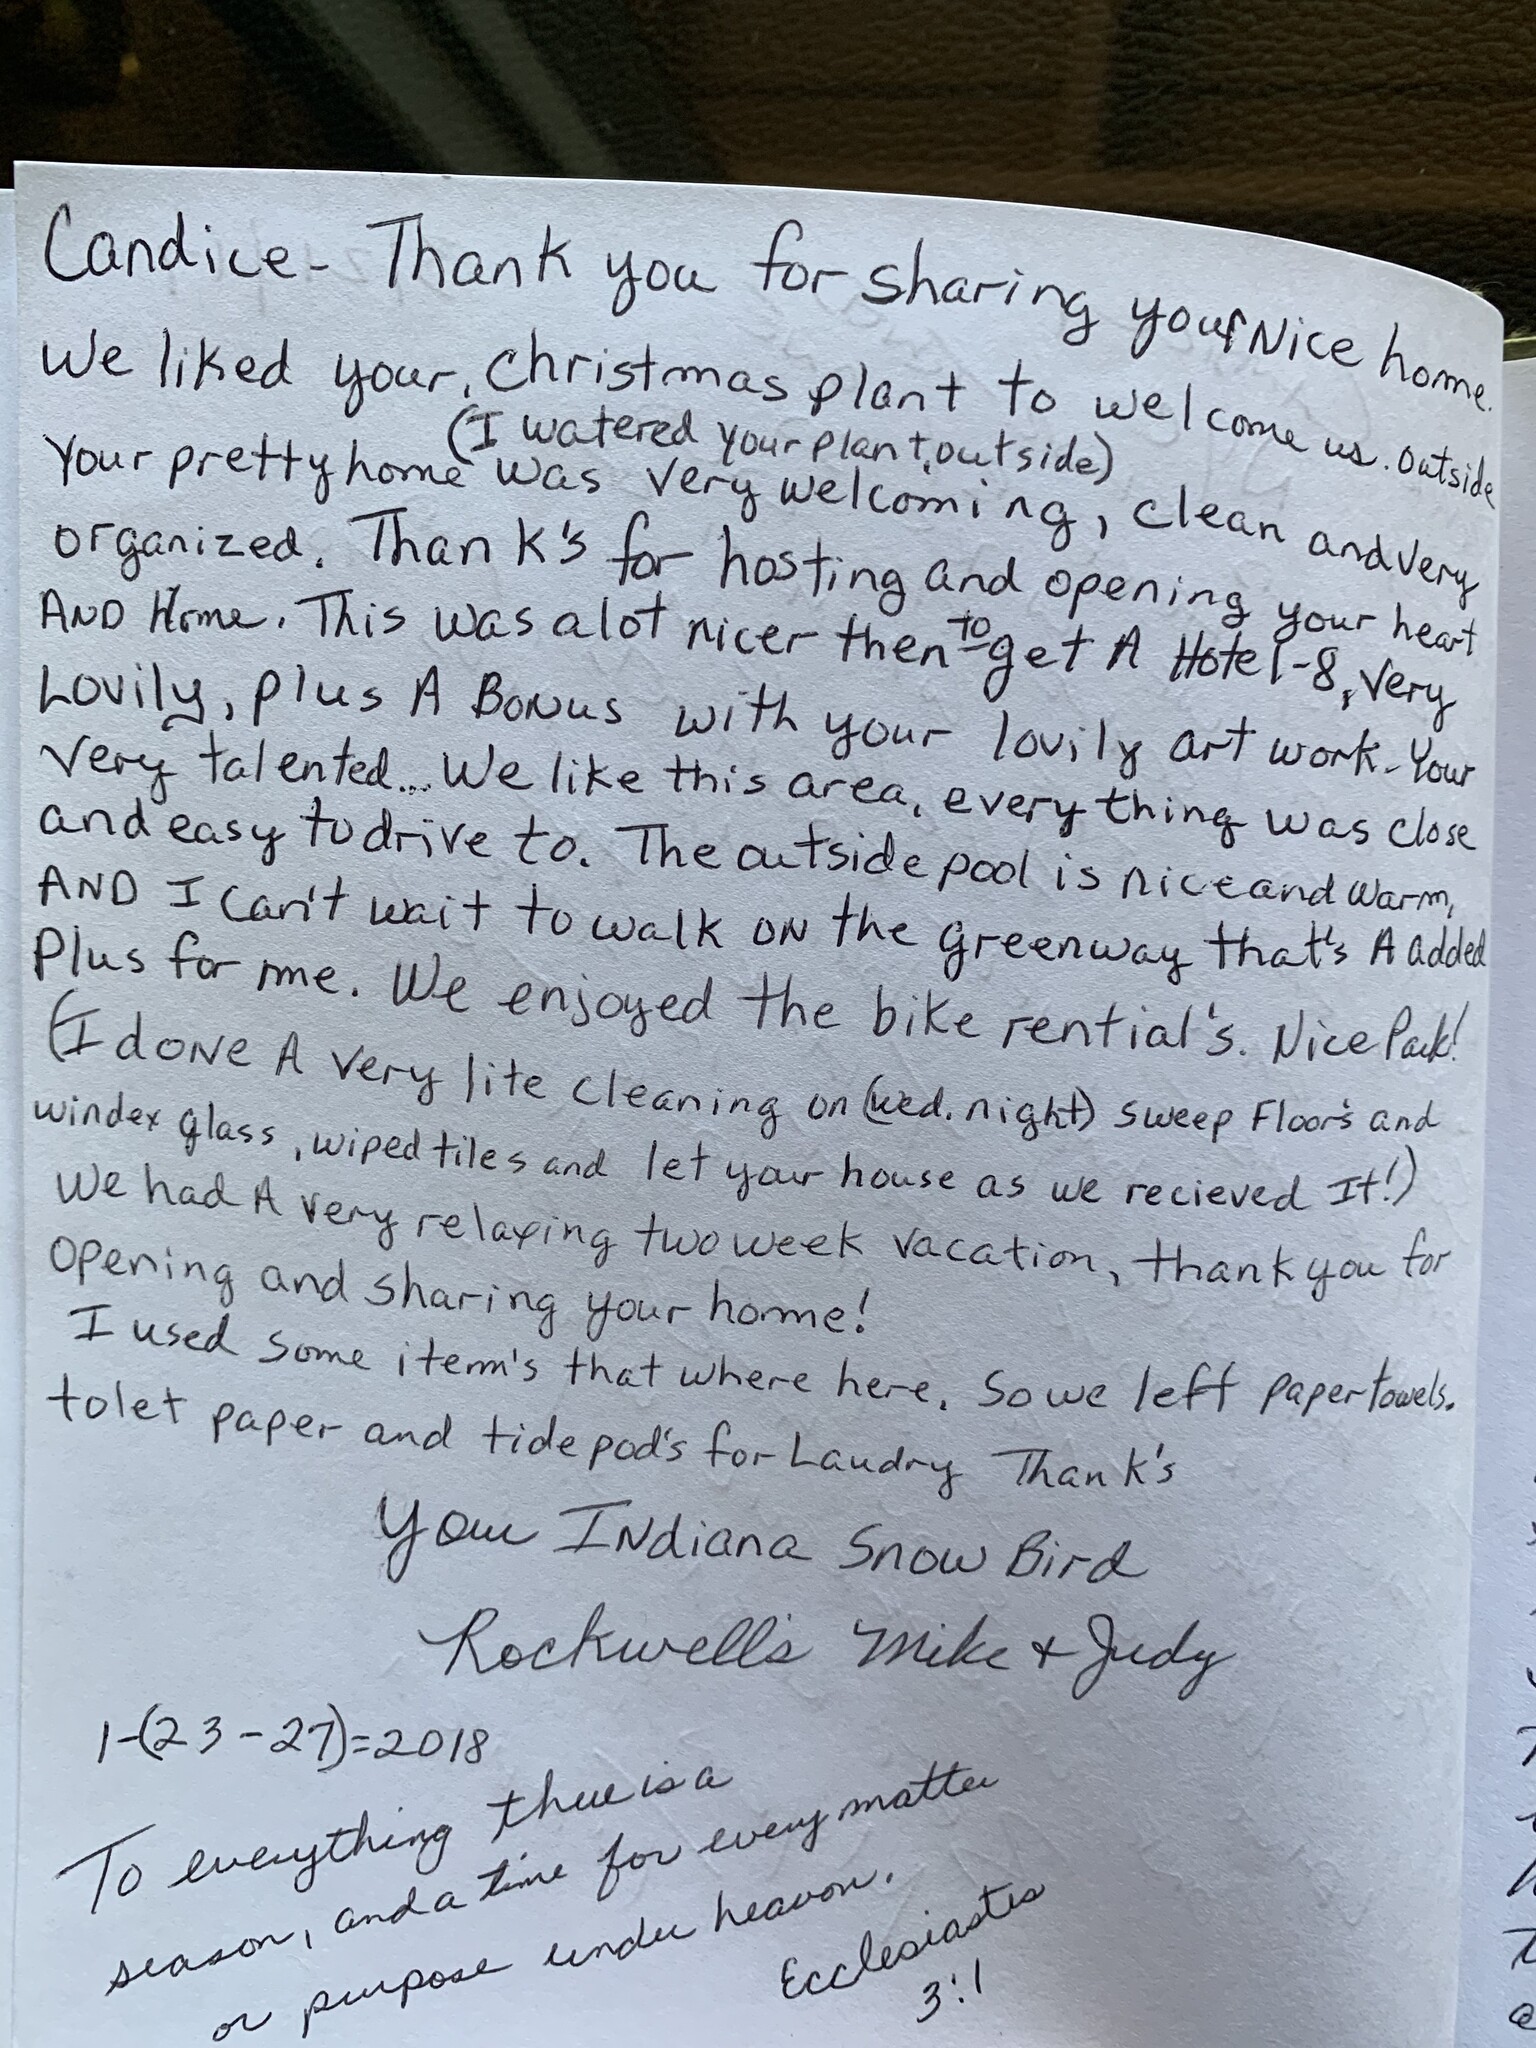 Candice - Thank you for sharing your Nice home.
We liked your, Christmas plant to welcome us. outside
(I watered your plant, outside)
Your pretty home was very welcoming, clean and very
organized. Thank's for hosting and opening your heart
AND Home. This was alot nicer then to get A Hotel-8, very
Lovily, plus A BONUS with your lovily art work. Your
very talented... We like this area, everything was close
and easy to drive to. The outside pool is nice and warm,
AND I can't wait to walk ON the greenway that's A added
Plus for me. We enjoyed the bike rential's. Nice Park!
(I dONE A very lite cleaning on (wed. night) sweep Floor's and
windex glass, wiped tiles and let your house as we recieved It!)
We had A very relaxing two week vacation, thank you for
opening and sharing your home!
I used some item's that where here. So we left paper towels.
tolet paper and tide pod's for Laudry Thank's
Your INdiana Snow Bird
Rockwell's Mike & Judy
1-(23-27)=2018
To everything there is a
season, and a time for every matter
or purpose under heavon.
Ecclesiastes
3:1